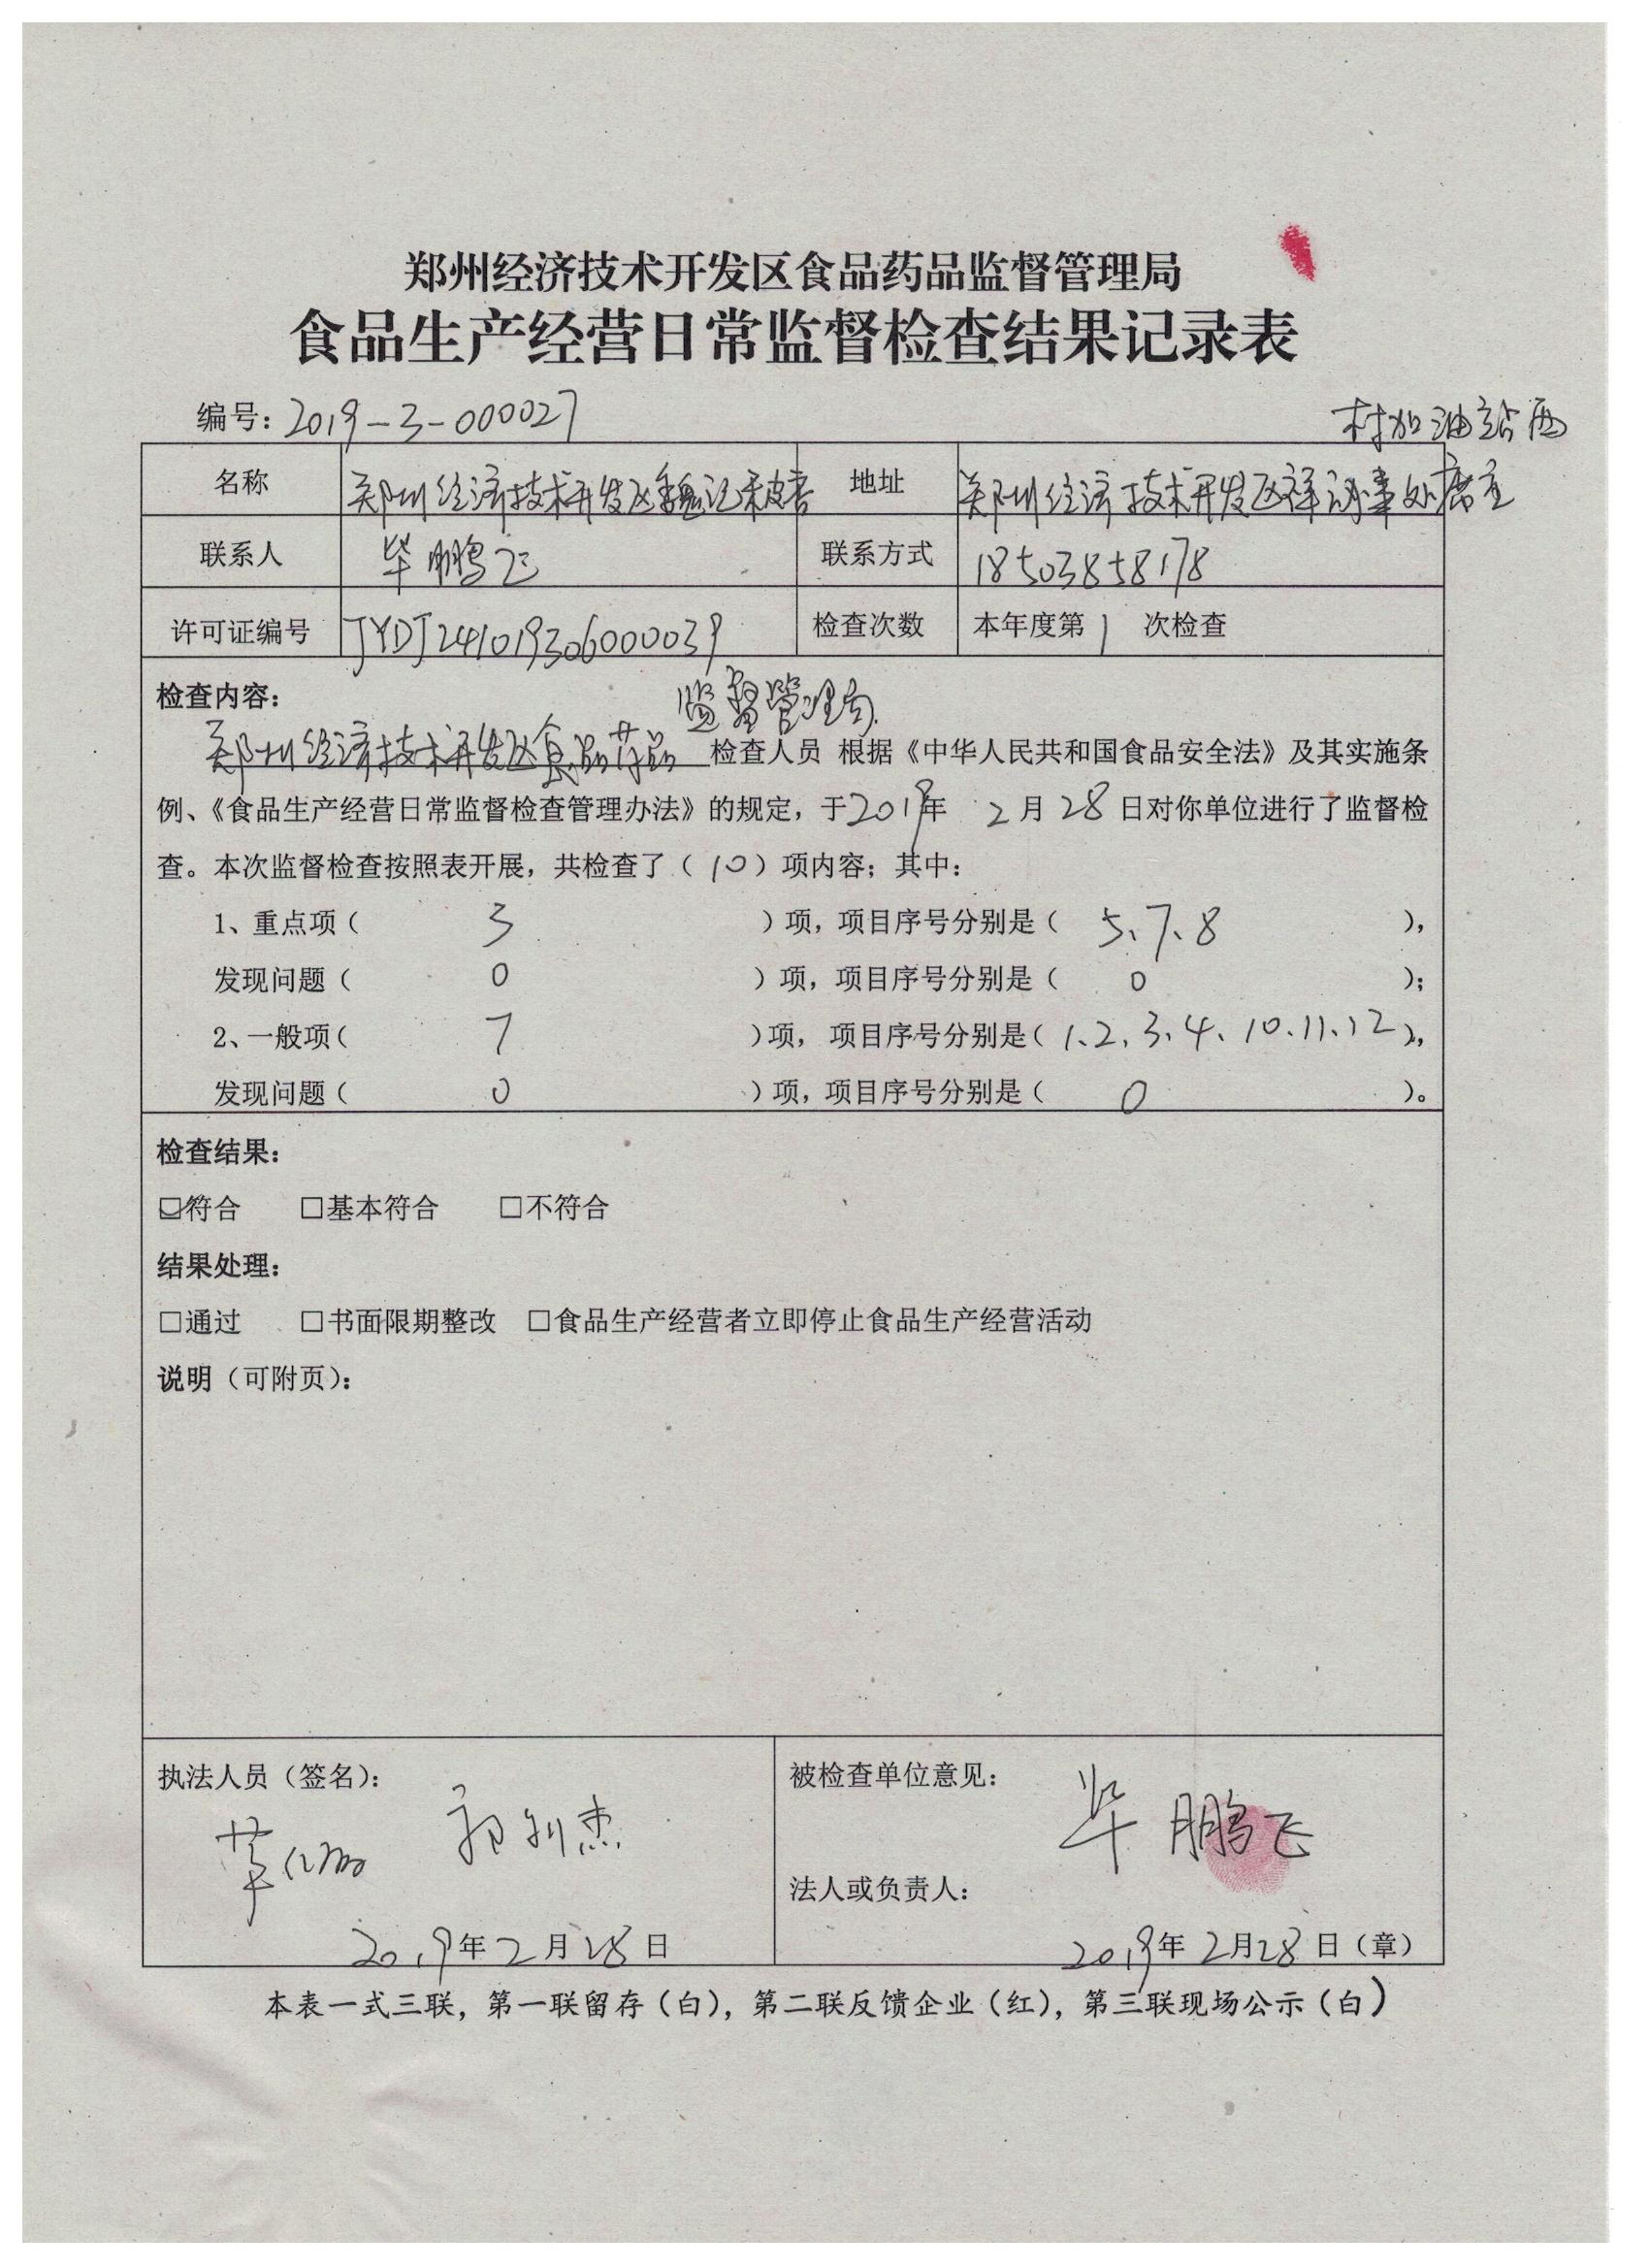 郑州经济技术开发区食品药品监督管理局
食品生产经营日常监督检查结果记录表
编号：2019-3-000027
村加油站西
名称 郑州经济技术开发区魏记 地址 郑州经济技术开发区祥 办事处席
联系人 毕鹏飞 联系方式 18503858178
许可证编号 JYDJ24101930600039 检查次数 本年度第1次检查
检查内容：
监督管理局
郑州经济技术开发区食品药品 检查人员 根据《中华人民共和国食品安全法》及其实施条
例、《食品生产经营日常监督检查管理办法》的规定，于2019年 2月28日对你单位进行了监督检
查。本次监督检查按照表开展，共检查了（10）项内容；其中：
1、重点项（ 3 ）项，项目序号分别是（ 5、7、8 ），
发现问题（ 0 ）项，项目序号分别是（ 0 ）；
2、一般项（ 7 ）项，项目序号分别是（1、2、3、4、10、11、12），
发现问题（ 0 ）项，项目序号分别是（ 0 ）。
检查结果：
☑符合 □基本符合 □不符合
结果处理：
□通过 □书面限期整改 □食品生产经营者立即停止食品生产经营活动
说明（可附页）：
执法人员（签名）： 被检查单位意见：
毕鹏飞
法人或负责人：
2019年2月28日 2019年2月28日（章）
本表一式三联，第一联留存（白），第二联反馈企业（红），第三联现场公示（白）